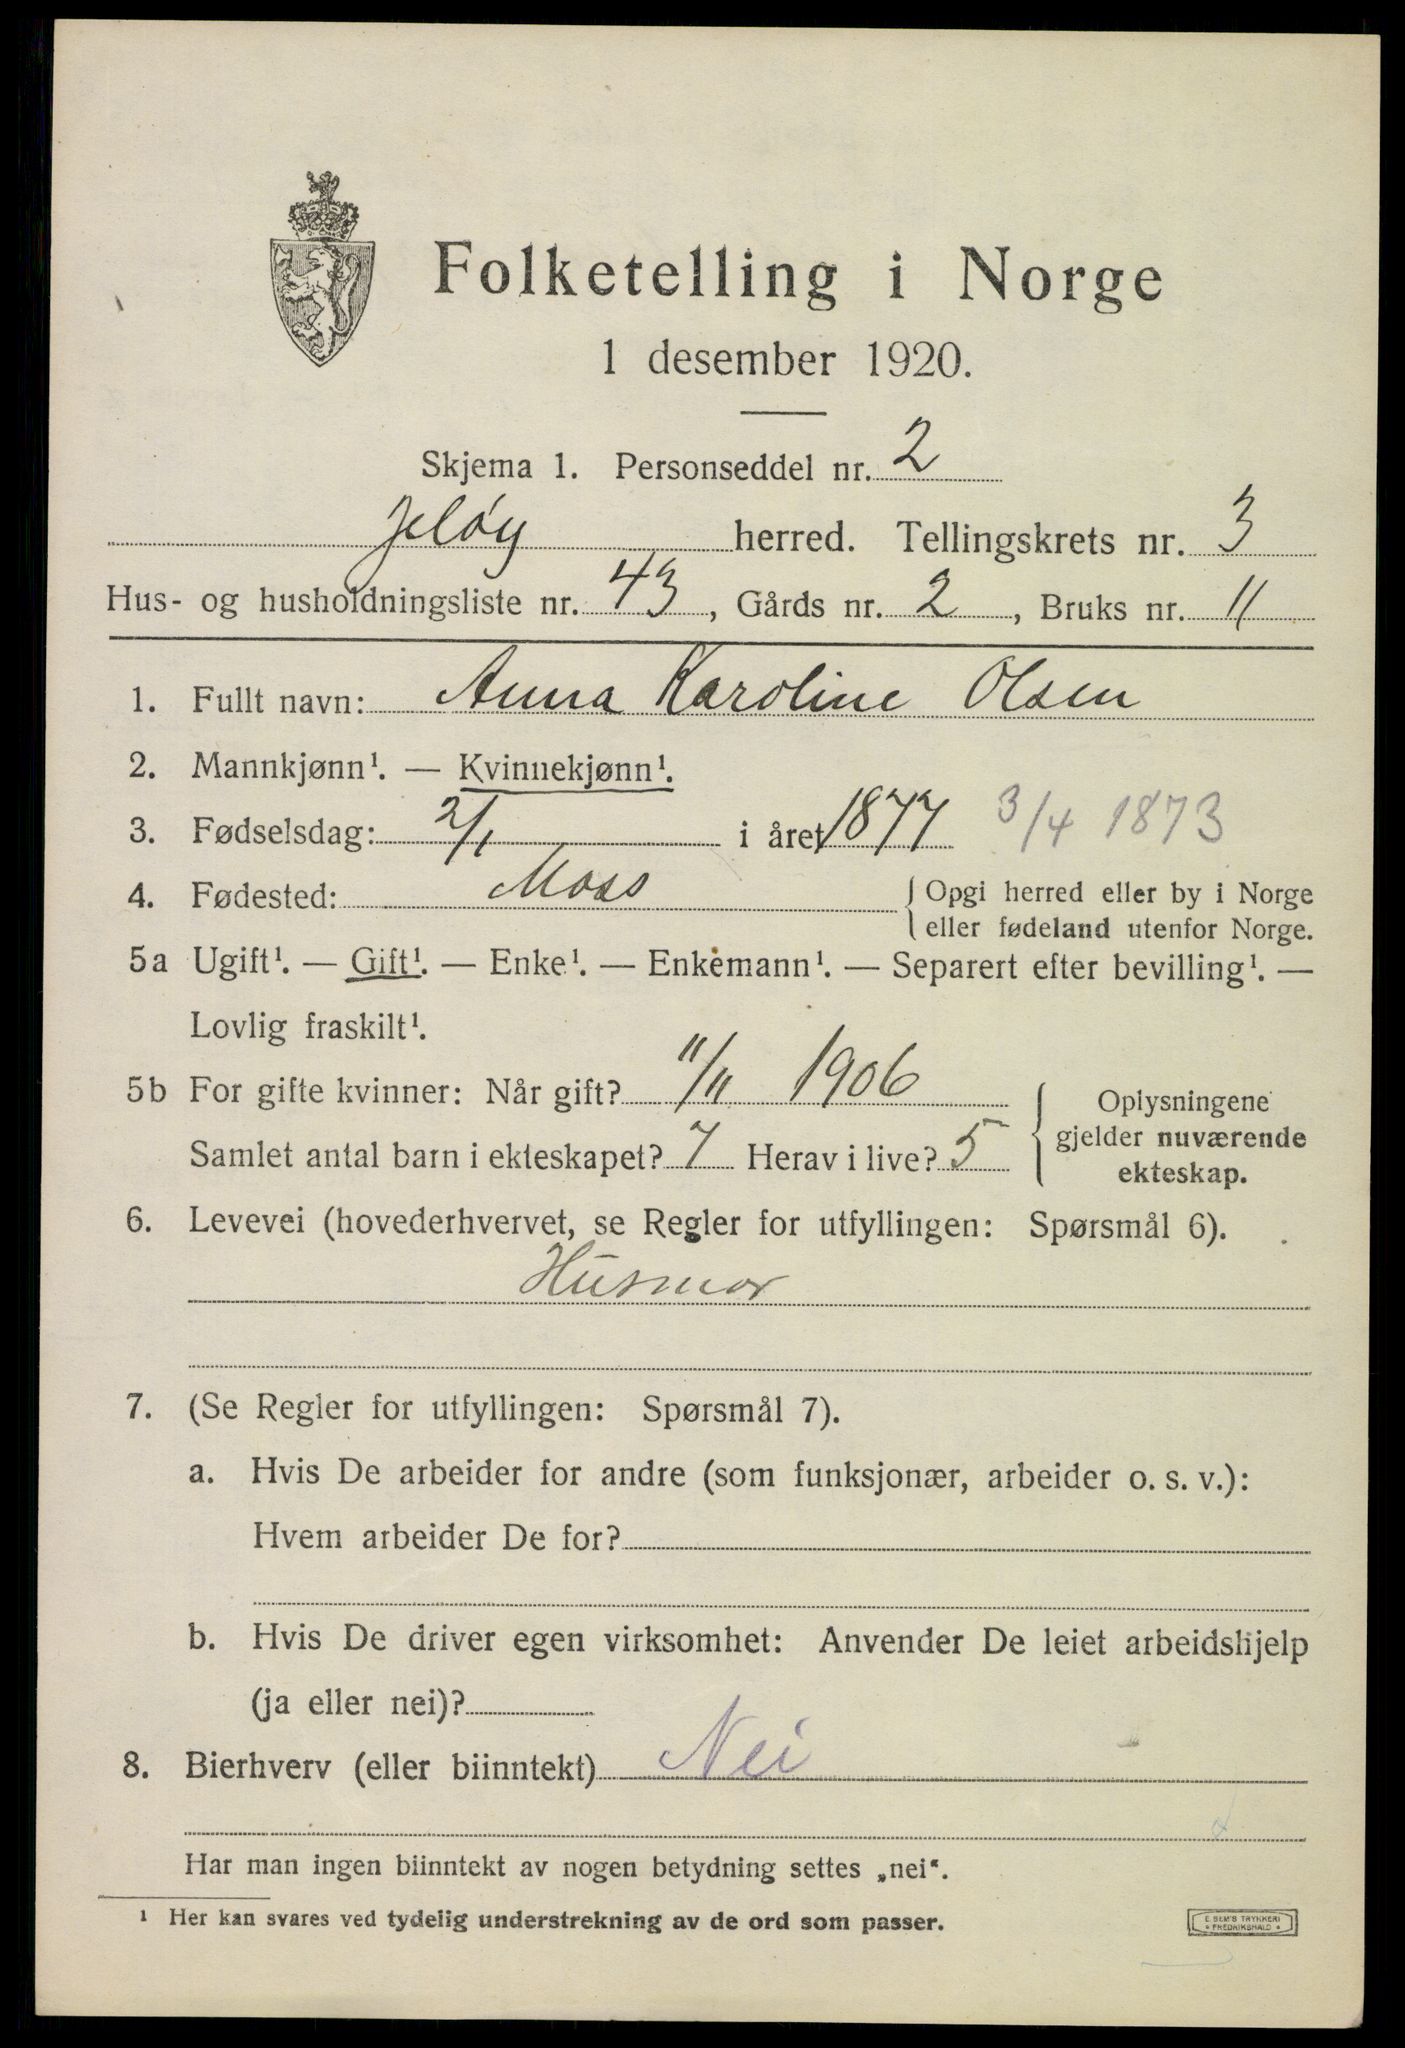 Folketelling i Norge
1 desember 1920.
Skjema 1. Personseddel nr. 2
Jeløy herred. Tellingskrets nr. 3
Hus- og husholdningsliste nr. 43, Gårds nr. 2, Bruks nr. 11
1. Fullt navn: Anna Karoline Olsen
2. Mannkjønn¹. — Kvinnekjønn¹.
3. Fødselsdag: 2/1 i året 1877 3/4 1873
4. Fødested: Moss { Opgi herred eller by i Norge
eller fødeland utenfor Norge.
5a Ugift¹. — Gift¹. — Enke¹. — Enkemann¹. — Separert efter bevilling¹. —
Lovlig fraskilt¹.
5b For gifte kvinner: Når gift? 11/11 1906
Samlet antal barn i ekteskapet? 7 Herav i live? 5
{ Oplysningene
gjelder nuværende
ekteskap.
6. Levevei (hovederhvervet, se Regler for utfyllingen: Spørsmål 6).
Husmor
7. (Se Regler for utfyllingen: Spørsmål 7).
a. Hvis De arbeider for andre (som funksjonær, arbeider o. s. v.):
Hvem arbeider De for?
b. Hvis De driver egen virksomhet: Anvender De leiet arbeidshjelp
(ja eller nei)?
8. Bierhverv (eller biinntekt) Nei
Har man ingen biinntekt av nogen betydning settes „nei“.
¹ Her kan svares ved tydelig understrekning av de ord som passer.
E. SEM'S TRYKKERI
FREDRIKSHALD